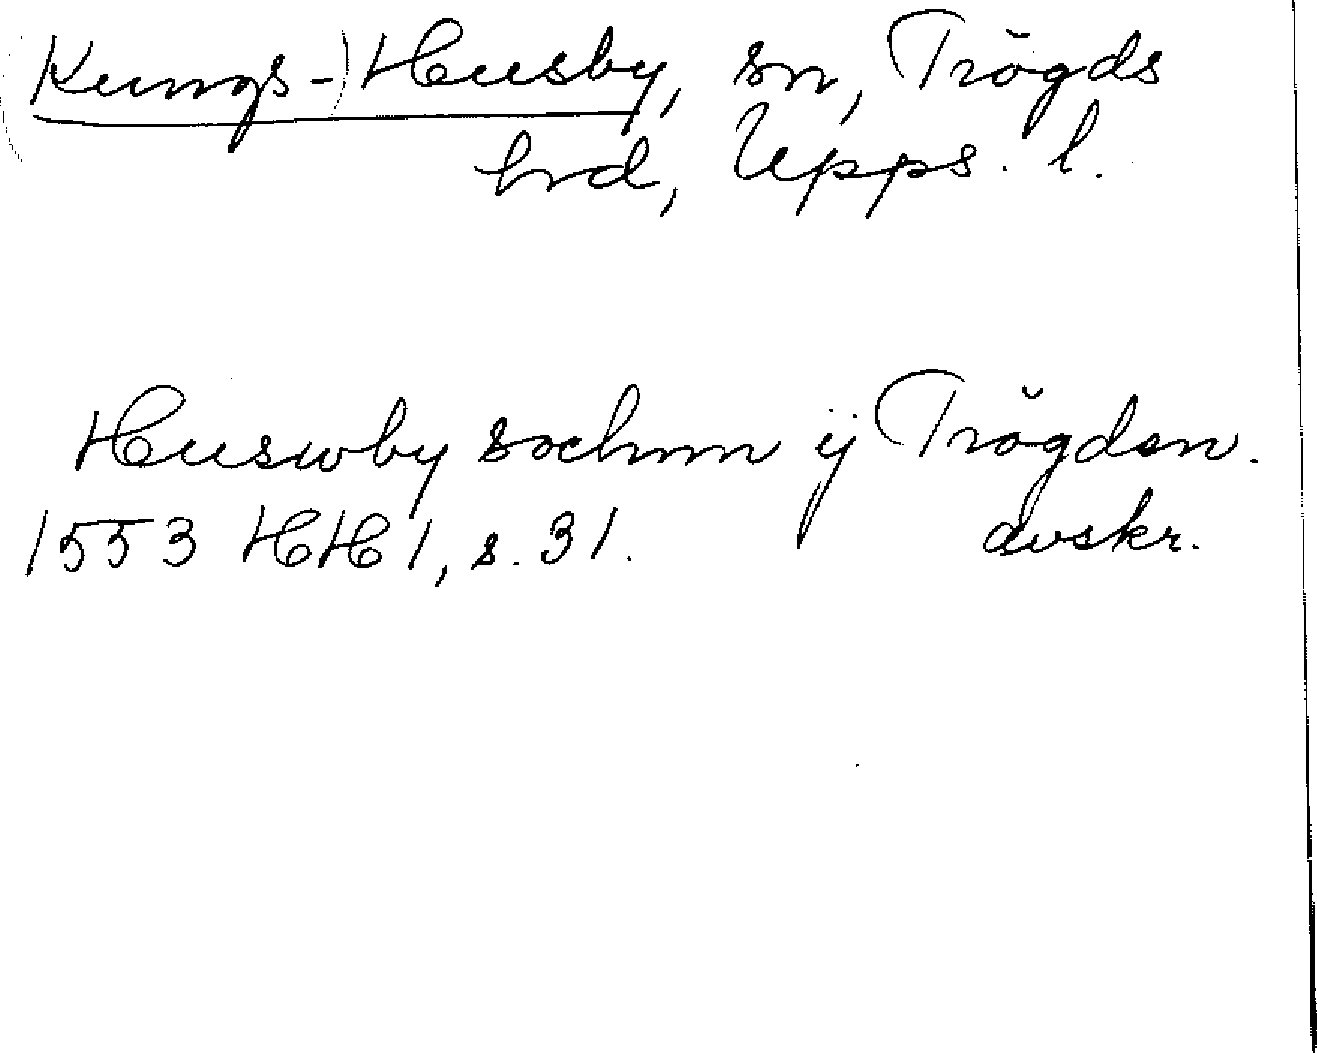 (Kungs-)Husby, sn, Trögds
hrd, Upps. l.
Huswby sochnn ij Trögden.
1553 HH 1, s. 31. avskr.